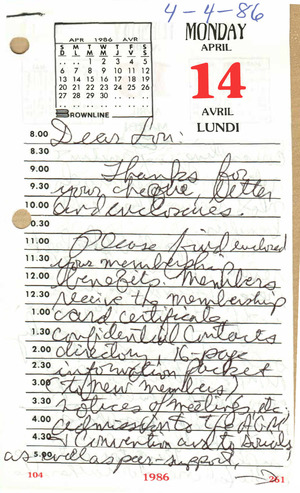 4-4-86
APR 1986 AVR
S L M M J V S
D M T W T F S
1 2 3 4 5
6 7 8 9 10 11 12
13 14 15 16 17 18 19
20 21 22 23 24 25 26
27 28 29 30
BROWNLINE
MONDAY
APRIL
14
AVRIL
LUNDI
8.00 Dear Lou:
8.30
9.00 Thanks for
9.30 your cheque, letter
10.00 and enclosures.
0.30
11.00 Please find enclosed
11.30 your membership
12.00 benefits. Members
12.30 receive the membership
1.00 card certificate,
1.30 confidential Contacts
2.00 directory, 16-page
2.30 information packet
3.00 (to new members)
3.30 notices of meetings, etc,
4.00 admission to the AGM
4.30 & Convention and to Socials,
5.00 as well as peer-support,
104 1986 261